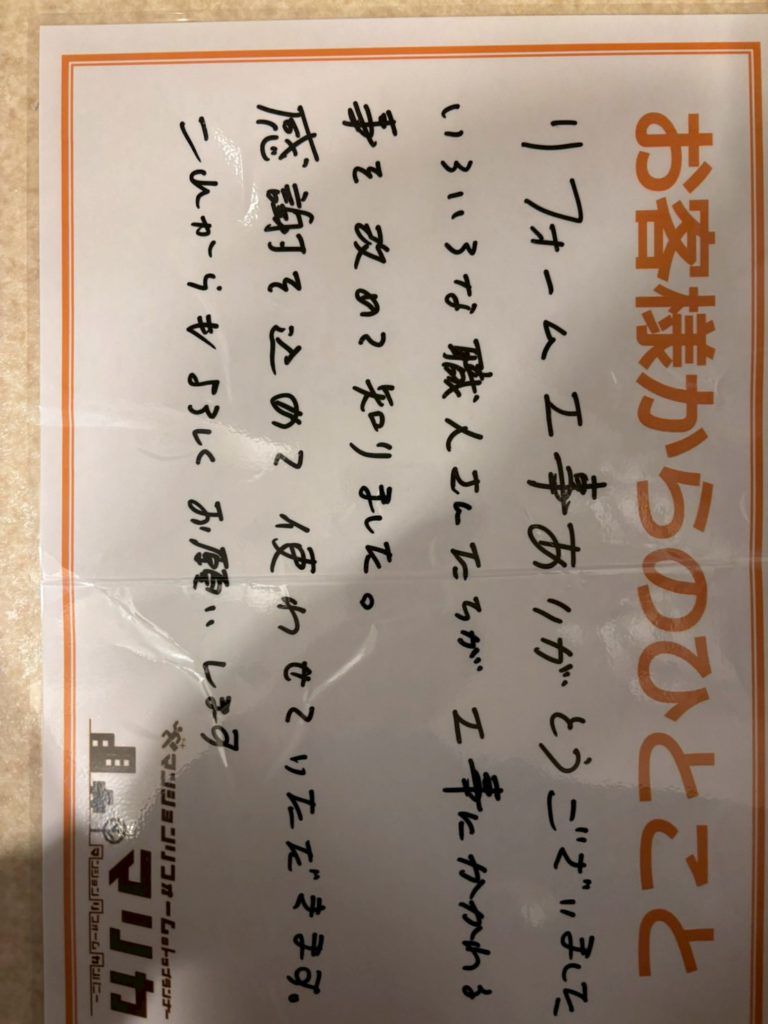 お客様からのひとこと
リフォーム工事ありがとうございました
いろいろな職人さんたちが工事にかかわる
事を改めて知りました。
感謝を込めて使わせていただきます。
これからもよろしくお願いします
マンションリフォームのトップランナー
マリカ
マンションリフォームカンパニー